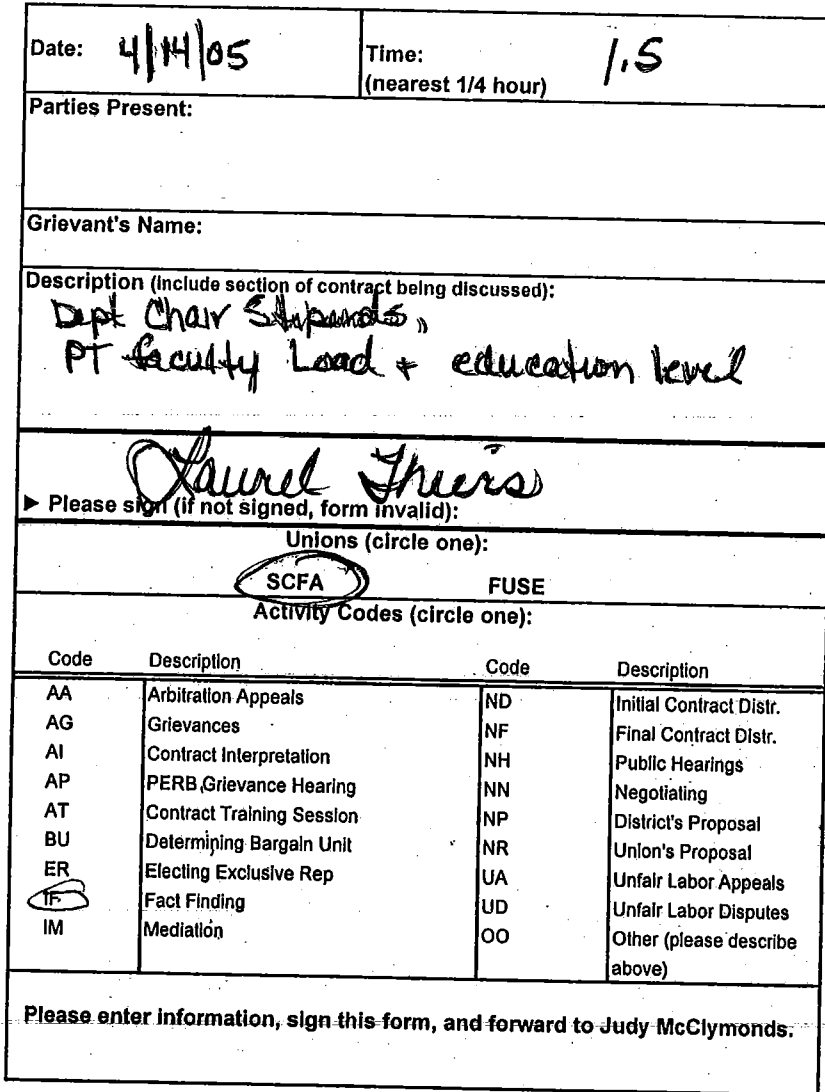 Date: 4/14/05 Time: 1.5
(nearest 1/4 hour)
Parties Present:
Grievant's Name:
Description (include section of contract being discussed):
Dept Chair Stipends,
PT faculty Load + education level
Laurel
▶ Please sign (if not signed, form invalid):
Unions (circle one):
SCFA FUSE
Activity Codes (circle one):
Code Description Code Description
AA Arbitration Appeals ND Initial Contract Distr.
AG Grievances NF Final Contract Distr.
AI Contract Interpretation NH Public Hearings
AP PERB Grievance Hearing NN Negotiating
AT Contract Training Session NP District's Proposal
BU Determining Bargain Unit NR Union's Proposal
ER Electing Exclusive Rep UA Unfair Labor Appeals
IF Fact Finding UD Unfair Labor Disputes
IM Mediation OO Other (please describe
above)
Please enter information, sign this form, and forward to Judy McClymonds.